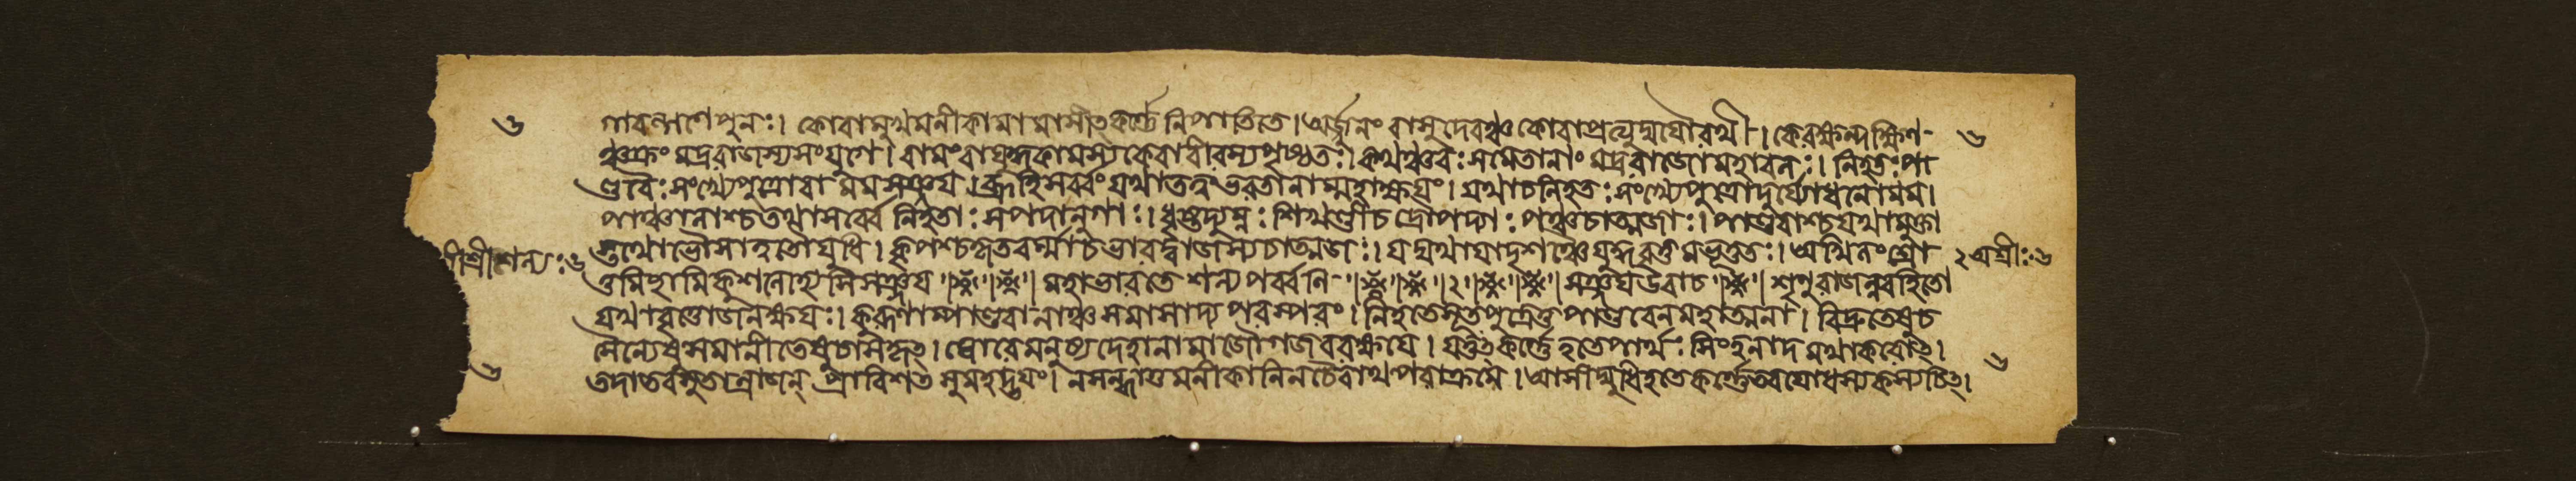 গাবল্গণে পুনঃ। কোবামুখমনীকামামাসীতকর্ণ্ণে নিপাতিতে। অর্জ্জুনং বাসুদেবঞ্চ কোবাপ্রত্যুদ্যযৌরথী। কেরক্ষন্দক্ষিণ-
ঞ্চক্রং মদ্ররাজস্যসংযুগে। বামংবাযোদ্ধুকামস্যকেবাবীরস্যপৃষ্ঠতঃ। কথঞ্চবঃ সমেতানাং মদ্ররাজোমহাবলঃ। নিহতঃপা
ণ্ডবৈঃ সংখ্যেপুত্রোবা মম সঞ্জয়। ব্রূহিসর্ব্বং যথাতত্ত্বং ভরতানাম্মহাক্ষয়ং। যথাচনিহতঃ সংখ্যেপুত্রোদুর্য্যোধনোমম।
পাঞ্চালাশ্চতথাসর্ব্বে নিহতাঃ সপদানুগাঃ। ধৃষ্টদ্যুম্নঃ শিখণ্ডীচ দ্রৌপদ্যাঃ পঞ্চচাত্মজাঃ। পাণ্ডবাশ্চযথামুক্তা
স্তথোভৌসাত্বতৌযুধি। কৃপশ্চকৃতবর্ম্মাচ ভারদ্বাজস্যচাত্মজঃ। যদ্যথাযাদৃশঞ্চৈব যুদ্ধবৃত্তমভূত্ততঃ। অখিলং শ্রো
তুমিছামিকুশলোহ্যসিসঞ্জয় ।।। মহাভারতে শল্য পর্ব্বনি ।।।২।।। সঞ্জয়উবাচ ।। শৃণুরাজন্নবহিতো
যথাবৃত্তোজনক্ষয়ঃ। কুরূণাম্পাণ্ডবানাঞ্চ সমাসাদ্য পরস্পরং। নিহতেসূতপুত্রেতু পাণ্ডবেনমহাত্মনা। বিদ্রুতেষুচ
সৈন্যেষু সমানীতেষুচাসকৃৎ। ঘোরে মনুষ্যদেহানামাজৌগজবরক্ষয়ে। যত্তৎকর্ণ্ণে হতেপার্থঃ সিংহনাদ মথাকরোৎ।
তদাতবসুতান্রাজন্ প্রাবিশত সুমহদ্ভয়ং। নসন্ধাতুমনীকানিনচৈবাথপরাক্রমে। আসীদ্বুদ্ধির্হতেকর্ণ্ণেতবযোধস্যকস্যচিৎ।
শ্রীশল্যঃ
২ শ্রীঃ